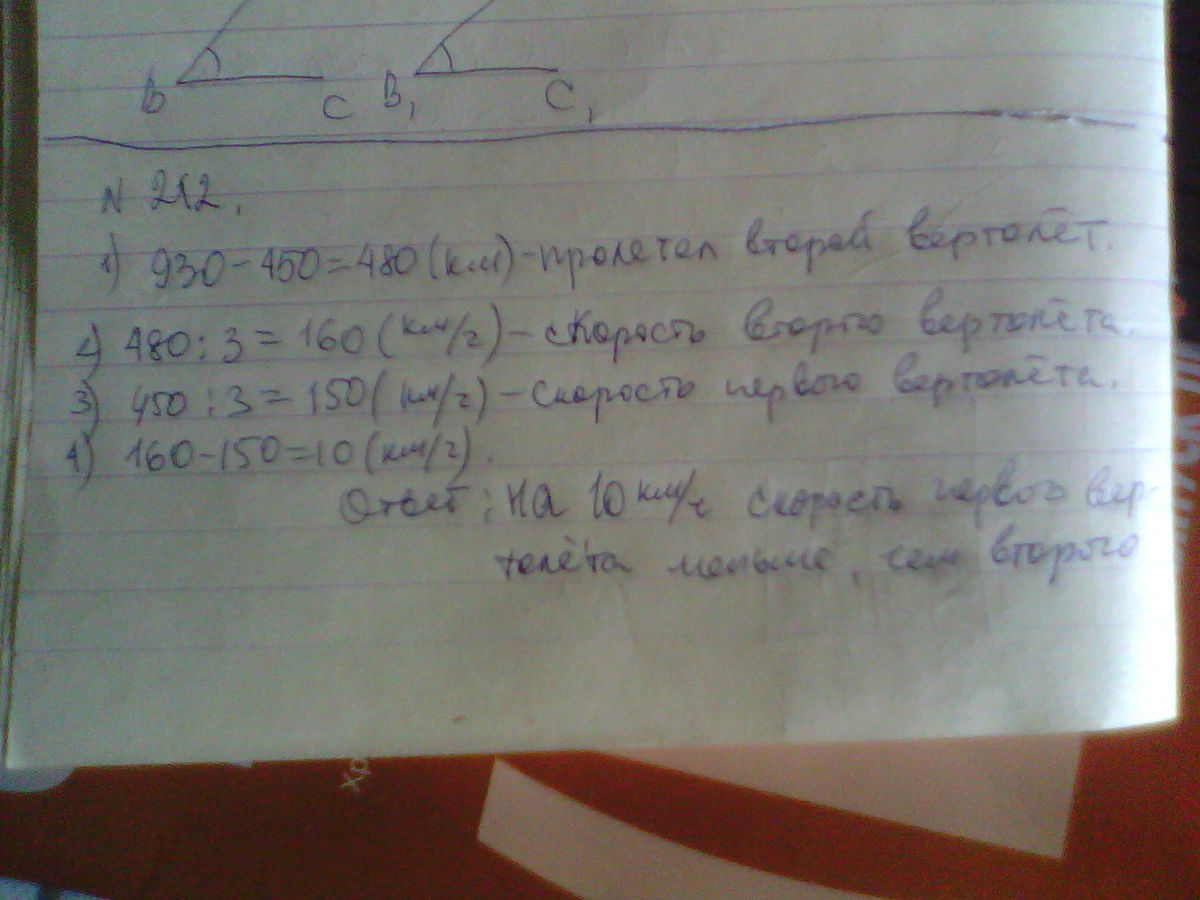 B C B₁ C₁
N 212.
1) 930-450=480(км)-пролетел второй вертолёт.
2) 480:3=160(км/г)-скорость второго вертолёта.
3) 450:3=150(км/г)-скорость первого вертолёта.
4) 160-150=10(км/г).
Ответ: на 10 км/ч скорость первого вер-
толёта меньше, чем второго